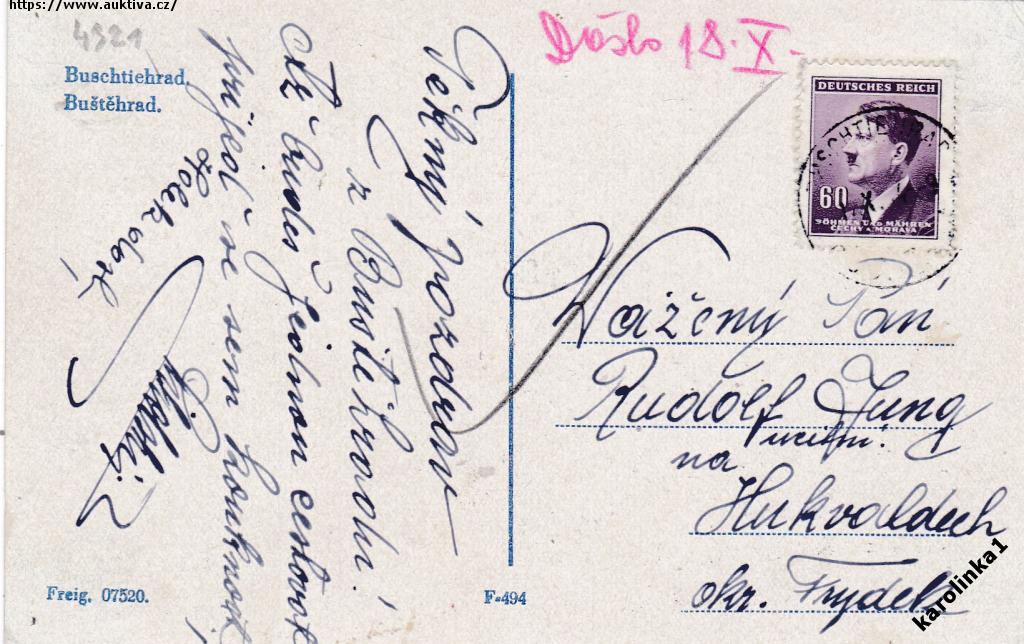 https://www.auktiva.cz/
4921
Buschtiehrad.
Buštěhrad.
Došlo 18. X.
DEUTSCHES REICH
60
BÖHMEN UND MÄHREN
ČECHY A MORAVA
Pěkný pozdrav
z Buštěhradu!
Až budeš jednou cestovat
přijeď se sem kouknout
Vážený Pán
Rudolf Jung
na
Hukvaldech
okr. Frýdek
Freig. 07520.
F-494
karolinka1